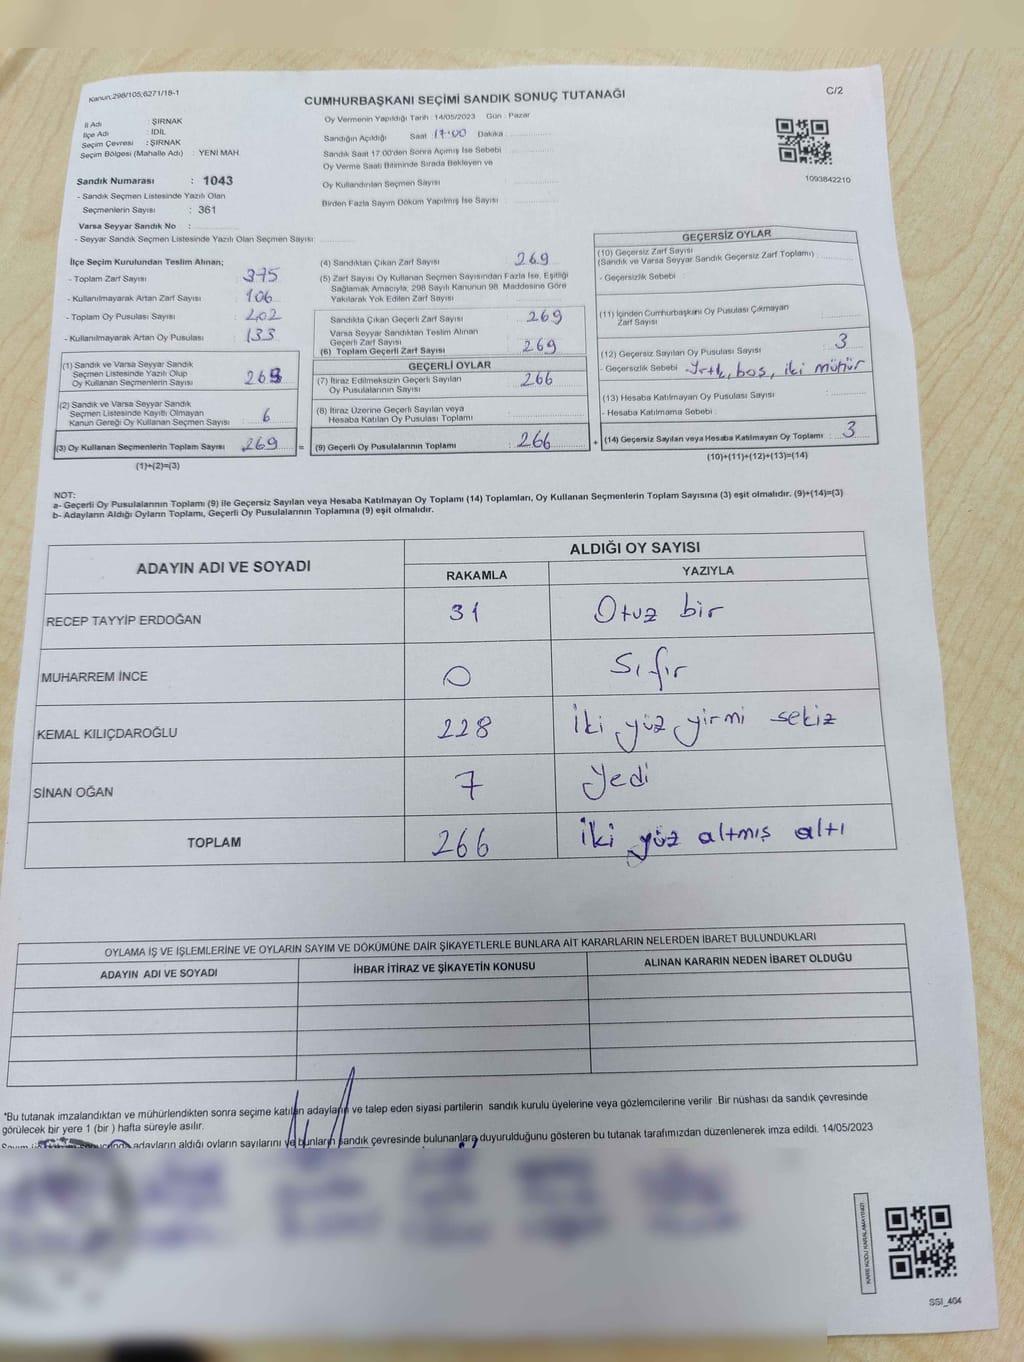 Kanun;298/105;6271/18-1
CUMHURBAŞKANI SEÇİMİ SANDIK SONUÇ TUTANAĞI
C/2
İl Adı : ŞIRNAK
İlçe Adı : İDİL
Seçim Çevresi : ŞIRNAK
Seçim Bölgesi (Mahalle Adı) : YENİ MAH.
Sandık Numarası : 1043
- Sandık Seçmen Listesinde Yazılı Olan
Seçmenlerin Sayısı : 361
Varsa Seyyar Sandık No :
- Seyyar Sandık Seçmen Listesinde Yazılı Olan Seçmen Sayısı:
Oy Vermenin Yapıldığı Tarih : 14/05/2023 Gün : Pazar
Sandığın Açıldığı Saat : 17:00 Dakika :
Sandık Saat 17.00'den Sonra Açımış İse Sebebi :
Oy Verme Saati Bitiminde Sırada Bekleyen ve
Oy Kullandırılan Seçmen Sayısı :
Birden Fazla Sayım Döküm Yapılmış İse Sayısı :
1093842210
İlçe Seçim Kurulundan Teslim Alınan;
- Toplam Zarf Sayısı : 375
- Kullanılmayarak Artan Zarf Sayısı : 106
- Toplam Oy Pusulası Sayısı : 402
- Kullanılmayarak Artan Oy Pusulası : 133
(1) Sandık ve Varsa Seyyar Sandık
Seçmen Listesinde Yazılı Olup
Oy Kullanan Seçmenlerin Sayısı : 263
(2) Sandık ve Varsa Seyyar Sandık
Seçmen Listesinde Kayıtlı Olmayan
Kanun Gereği Oy Kullanan Seçmen Sayısı : 6
(3) Oy Kullanan Seçmenlerin Toplam Sayısı : 269 =
(1)+(2)=(3)
(4) Sandıktan Çıkan Zarf Sayısı : 269
(5) Zarf Sayısı Oy Kullanan Seçmen Sayısından Fazla İse, Eşitliği
Sağlamak Amacıyla, 298 Sayılı Kanunun 98. Maddesine Göre
Yakılarak Yok Edilen Zarf Sayısı :
Sandıkta Çıkan Geçerli Zarf Sayısı : 269
Varsa Seyyar Sandıktan Teslim Alınan
Geçerli Zarf Sayısı :
(6) Toplam Geçerli Zarf Sayısı : 269
GEÇERLİ OYLAR
(7) İtiraz Edilmeksizin Geçerli Sayılan : 266
Oy Pusulasının Sayısı
(8) İtiraz Üzerine Geçerli Sayılan veya
Hesaba Katılan Oy Pusulası Toplamı :
(9) Geçerli Oy Pusulalarının Toplamı : 266 +
GEÇERSİZ OYLAR
(10) Geçersiz Zarf Sayısı
(Sandık ve Varsa Seyyar Sandık Geçersiz Zarf Toplamı) :
- Geçersizlik Sebebi :
(11) İçinden Cumhurbaşkanı Oy Pusulası Çıkmayan
Zarf Sayısı :
(12) Geçersiz Sayılan Oy Pusulası Sayısı : 3
- Geçersizlik Sebebi : Yırtık, boş, iki mühür
(13) Hesaba Katılmayan Oy Pusulası Sayısı :
- Hesaba Katılmama Sebebi :
(14) Geçersiz Sayılan veya Hesaba Katılmayan Oy Toplamı : 3
(10)+(11)+(12)+(13)=(14)
NOT:
a- Geçerli Oy Pusulalarının Toplamı (9) ile Geçersiz Sayılan veya Hesaba Katılmayan Oy Toplamı (14) Toplamları, Oy Kullanan Seçmenlerin Toplam Sayısına (3) eşit olmalıdır. (9)+(14)=(3)
b- Adayların Aldığı Oyların Toplamı, Geçerli Oy Pusulalarının Toplamına (9) eşit olmalıdır.
ADAYIN ADI VE SOYADI
ALDIĞI OY SAYISI
RAKAMLA YAZIYLA
RECEP TAYYİP ERDOĞAN 31 Otuz bir
MUHARREM İNCE 0 Sıfır
KEMAL KILIÇDAROĞLU 228 İki yüz yirmi sekiz
SİNAN OĞAN 7 Yedi
TOPLAM 266 İki yüz altmış altı
OYLAMA İŞ VE İŞLEMLERİNE VE OYLARIN SAYIM VE DÖKÜMÜNE DAİR ŞİKAYETLERLE BUNLARA AİT KARARLARIN NELERDEN İBARET BULUNDUKLARI
ADAYIN ADI VE SOYADI İHBAR İTİRAZ VE ŞİKAYETİN KONUSU ALINAN KARARIN NEDEN İBARET OLDUĞU
*Bu tutanak imzalandıktan ve mühürlendikten sonra seçime katılan adayların ve talep eden siyasi partilerin sandık kurulu üyelerine veya gözlemcilerine verilir. Bir nüshası da sandık çevresinde
görülecek bir yere 1 (bir ) hafta süreyle asılır.
adayların aldığı oyların sayılarını ve bunların sandık çevresinde bulunanlara duyurulduğunu gösteren bu tutanak tarafımızdan düzenlenerek imza edildi. 14/05/2023
KARE KODU KARALAMAYINIZ!
SSI_404